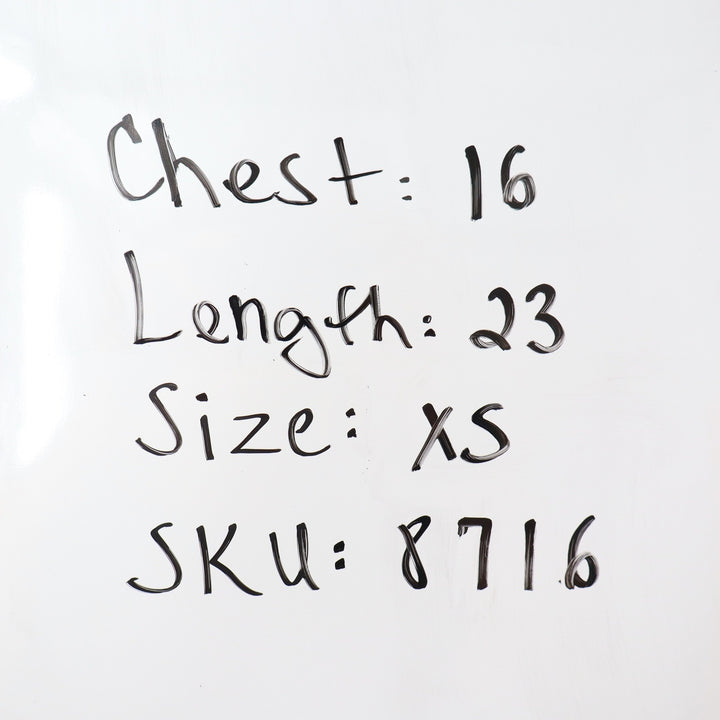 Chest: 16
Length: 23
Size: XS
SKU: 8716